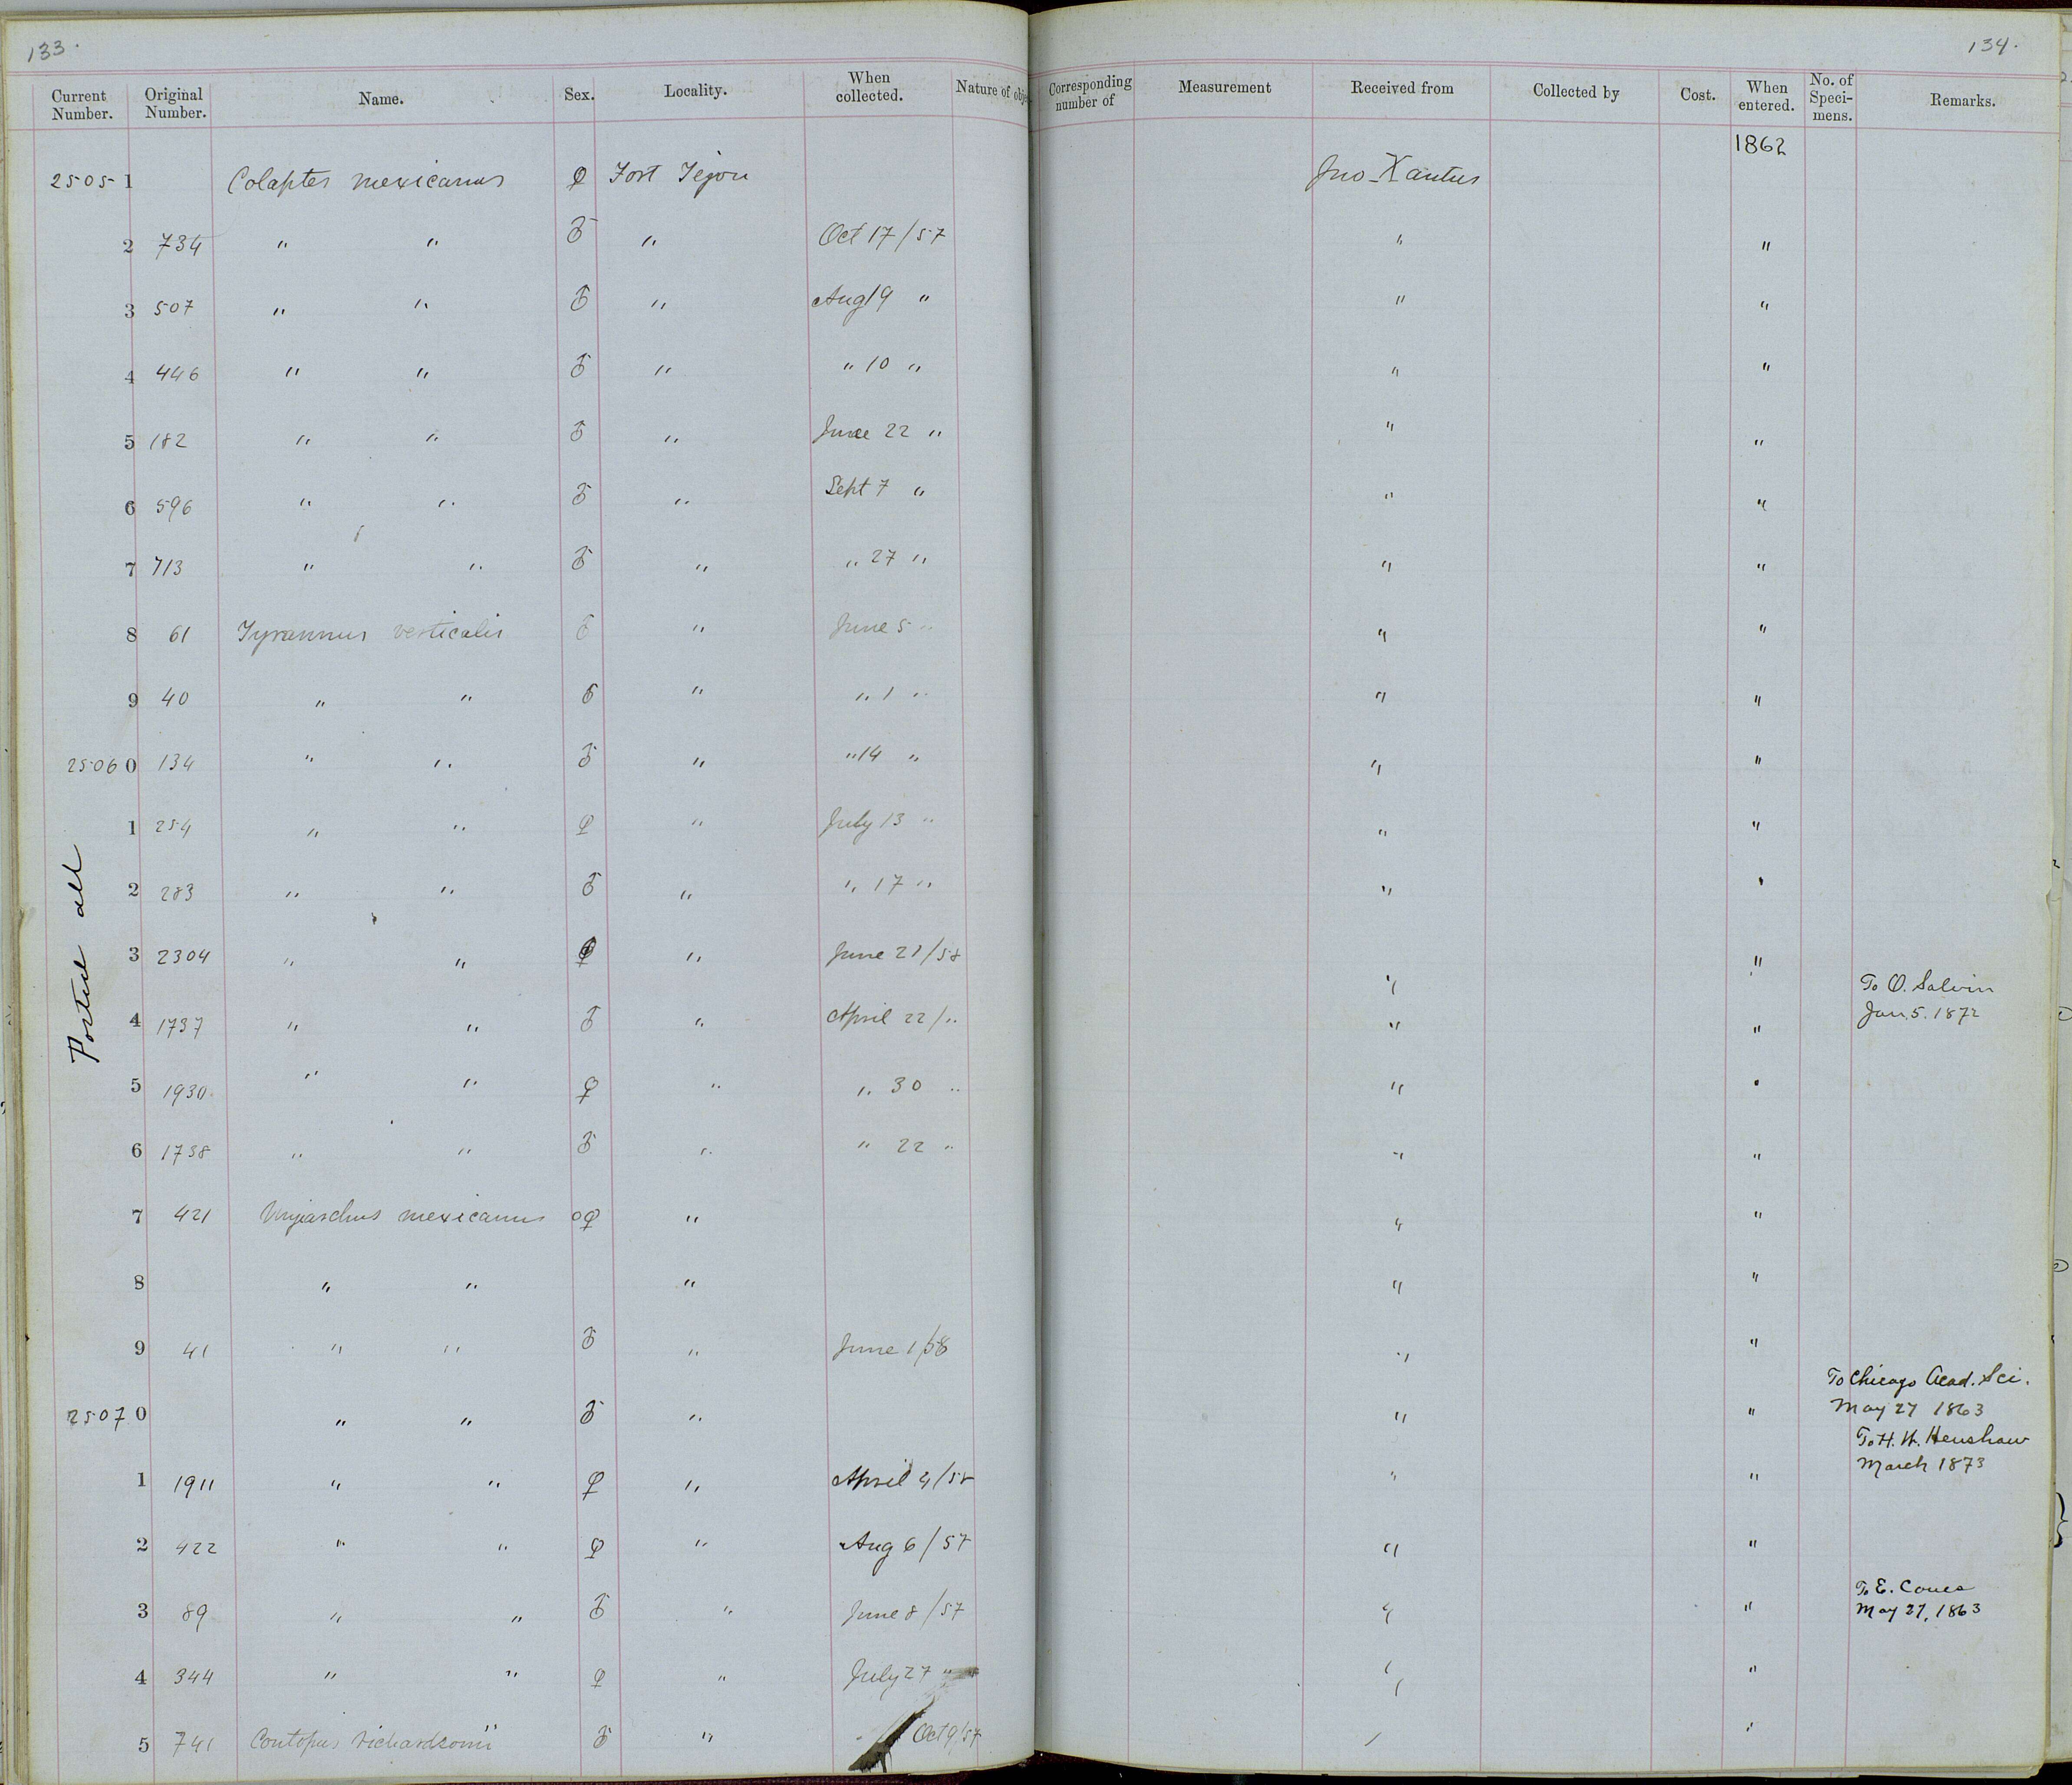 133.
Current Number. Original Number. Name. Sex. Locality. When collected. Nature of obje
25051 Colaptes mexicanus ♀ Fort Tejon
2 734 " " ♂ " Oct 17/57
3 507 " " ♂ " Aug 19 "
4 446 " " ♂ " " 10 "
5 182 " " ♂ " June 22 "
6 596 " " ♂ " Sept 7 "
7 713 " " ♂ " " 27 "
8 61 Tyrannus verticalis ♂ " June 5 "
9 40 " " ♂ " " 1 "
25060 134 " " ♂ " " 14 "
1 254 " " ♀ " July 13 "
2 283 " " ♂ " " 17 "
3 2304 " " ♀ " June 21/58
4 1737 " " ♂ " April 22/"
5 1930 " " ♀ " " 30 "
6 1738 " " ♂ " " 22 "
7 421 Myiarchus mexicanus ♀ "
8 " " "
9 41 " " ♂ " June 1/58
25070 " " ♂ "
1 1911 " " ♀ " April 4/58
2 422 " " ♀ " Aug 6/57
3 89 " " ♂ " June 8/57
4 344 " " ♀ " July 27 "
5 741 Contopus richardsonii ♂ " Oct 9/57
Posted all
134.
Corresponding number of Measurement Received from Collected by Cost. When entered. No. of Speci-mens. Remarks.
1862
Jno Xantus
" "
" "
" "
" "
" "
" "
" "
" "
" "
" "
" "
" "
To O. Salvin
Jan. 5. 1872
" "
" "
" "
" "
" "
" "
To Chicago Acad. Sci.
" " May 27 1863
To H. W. Henshaw
March 1873
" "
" "
To E. Coues
" " May 27, 1863
" "
" "